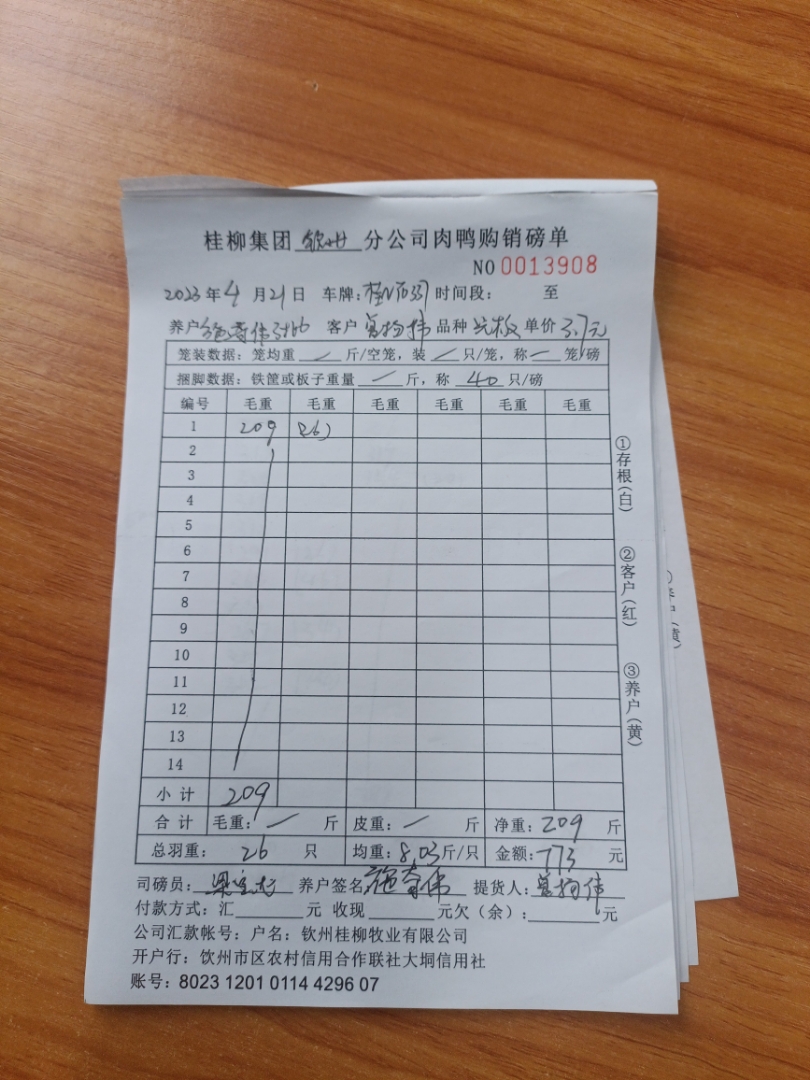 桂柳集团 钦州 分公司肉鸭购销磅单
NO 0013908
2023年4月21日 车牌: 时间段: 至
养户 客户 品种 单价 3.7元
笼装数据: 笼均重 / 斤/空笼, 装 / 只/笼, 称 / 笼/磅
捆脚数据: 铁筐或板子重量 / 斤, 称 40 只/磅
编号 毛重 毛重 毛重 毛重 毛重 毛重
1 209 (26)
2
3
4
5
6
7
8
9
10
11
12
13
14
小计 209
合计 毛重: / 斤 皮重: / 斤 净重: 209 斤
总羽重: 26 只 均重: 8.03斤/只 金额: 773 元
司磅员: 养户签名 提货人:
付款方式: 汇 元 收现 元欠(余): 元
公司汇款帐号: 户名: 钦州桂柳牧业有限公司
开户行: 钦州市区农村信用合作联社大垌信用社
账号: 8023 1201 0114 4296 07
①存根(白) ②客户(红) ③养户(黄)